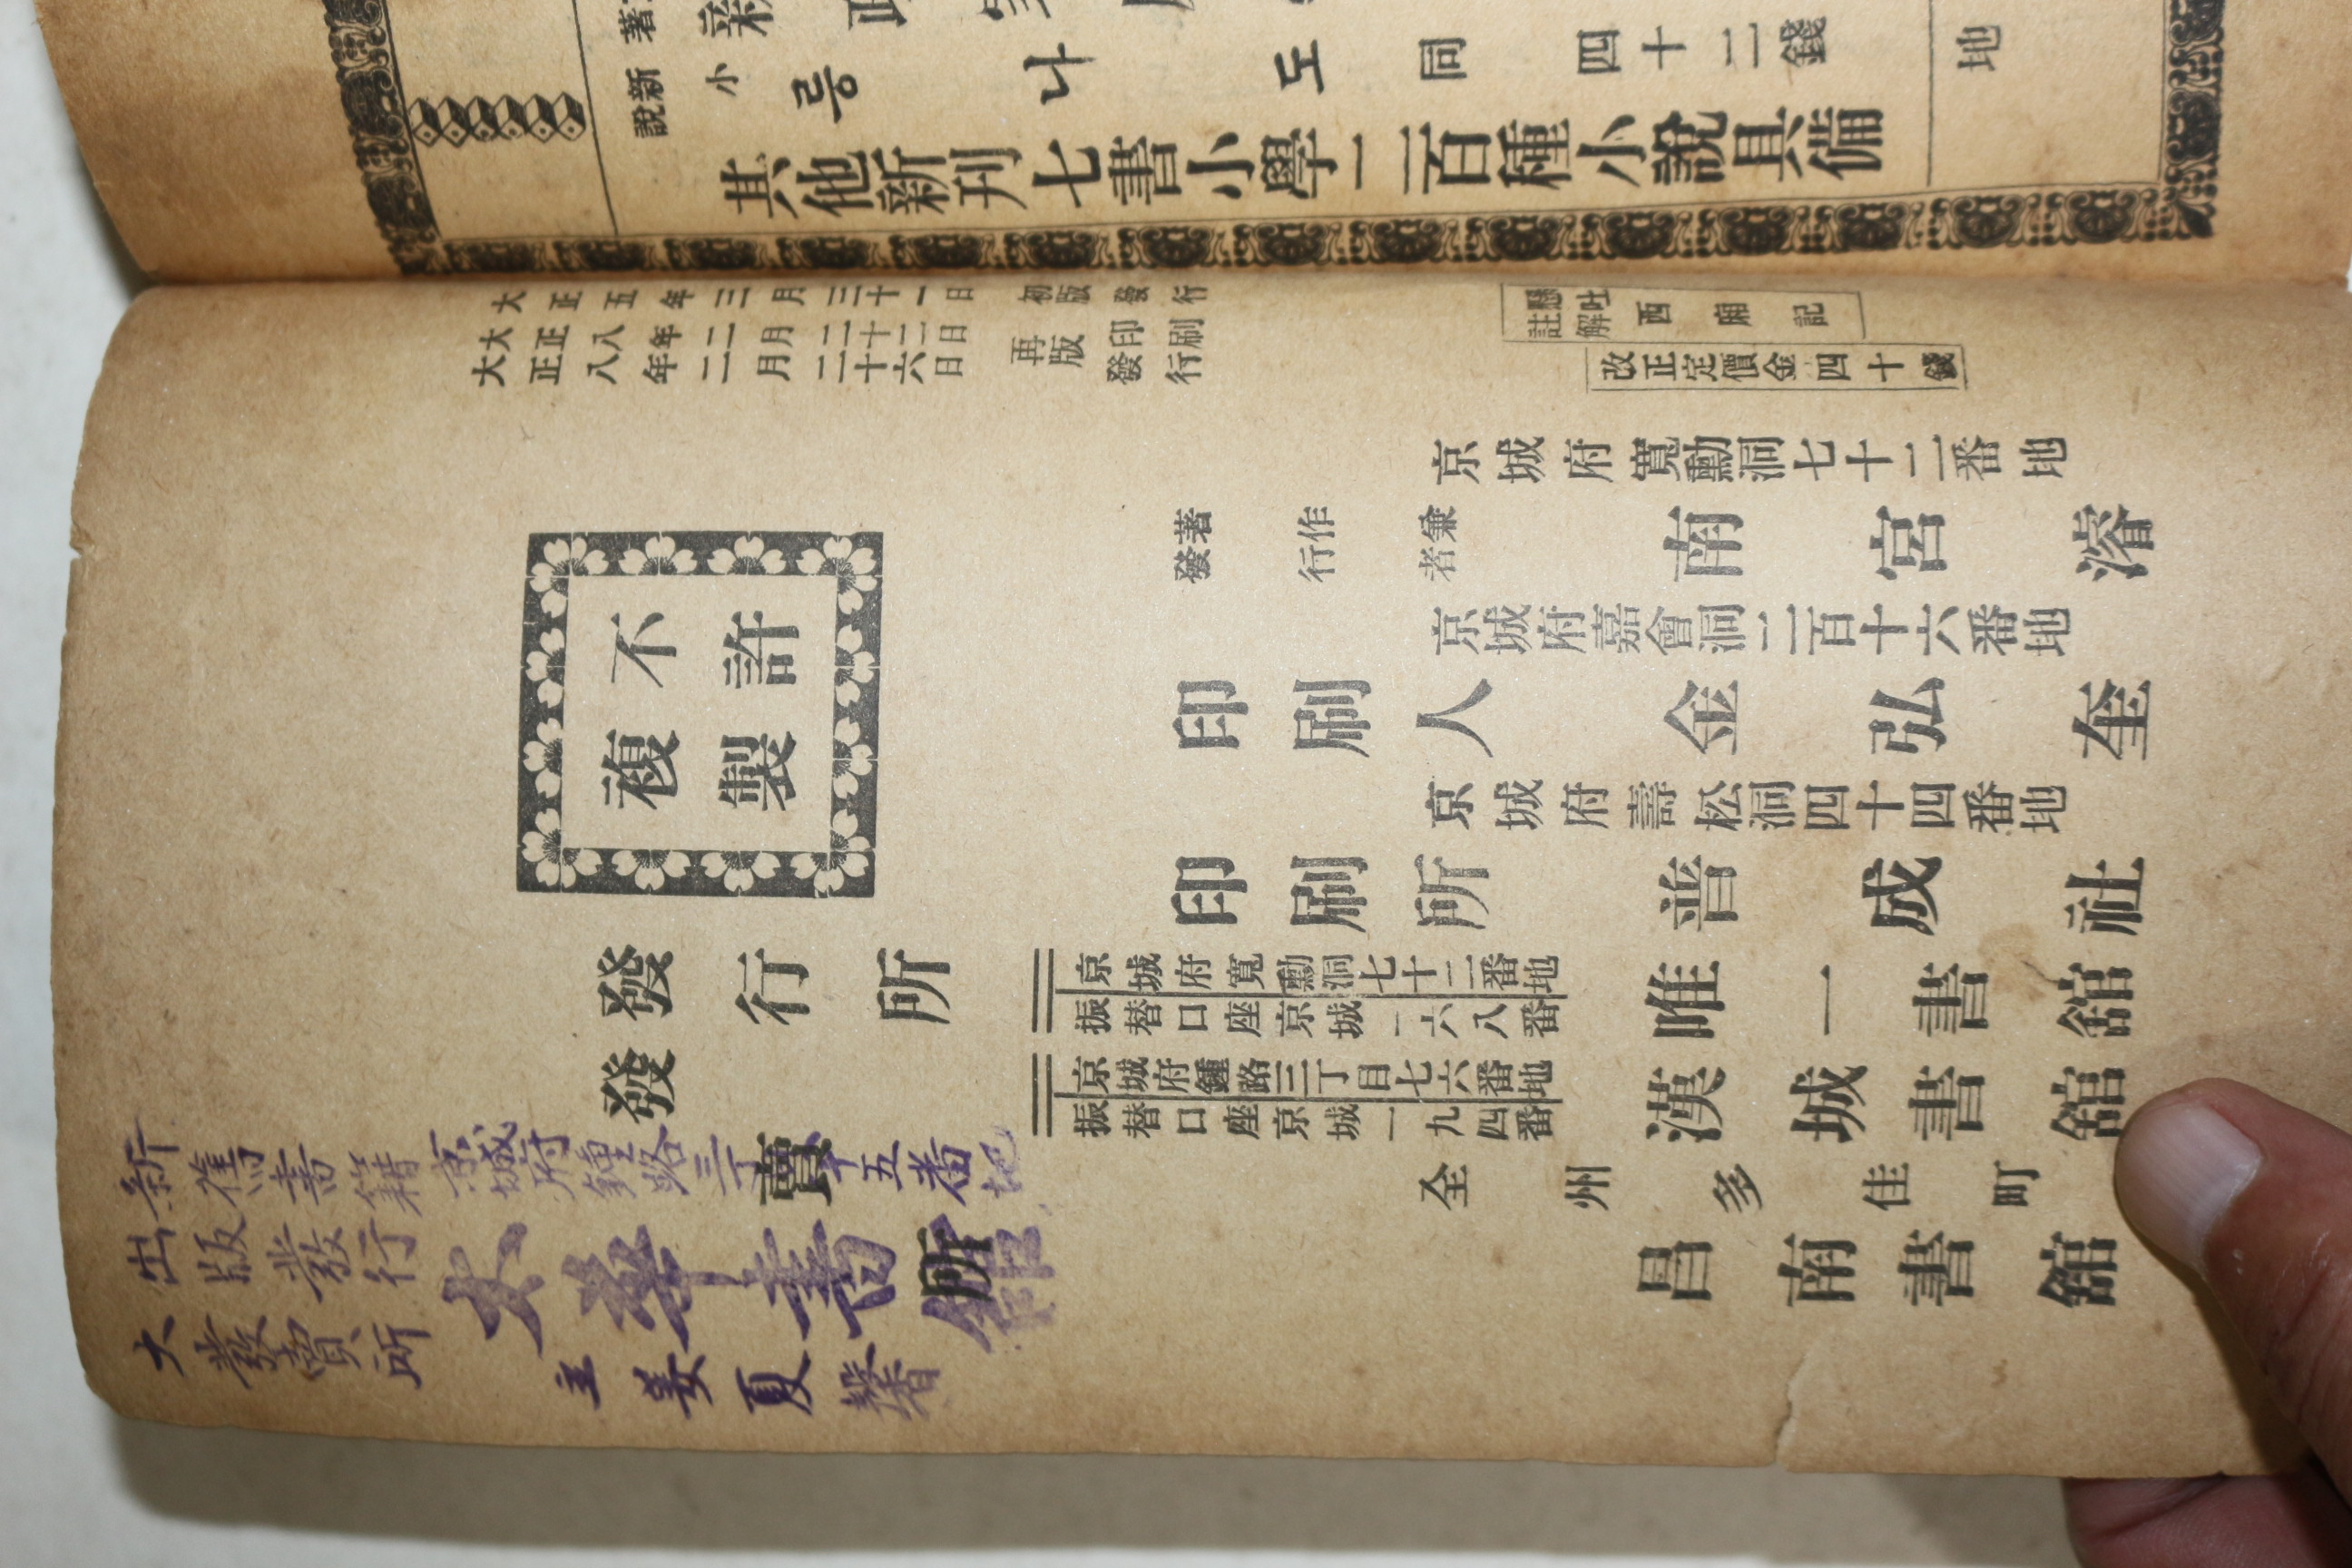 著
新小說
小릉나도同 四十二錢
地
其他新刊七書小學二百種小說具備
大正五年三月三十一日 初版 發行
大正八年二月二十二日 再版 印刷
大正八年二月二十六日 再版 發行
懸吐註解 西廂記
改正定價金四十錢
不許複製
京城府寬勳洞七十二番地
著作兼發行者 南宮濬
京城府嘉會洞二百十六番地
印刷人 金弘奎
京城府壽松洞四十四番地
印刷所 普成社
發行所
京城府寬勳洞七十二番地
振替口座京城一六八番
唯一書舘
發賣所
京城府鍾路三丁目七六番地
振替口座京城一九四番
漢城書舘
全州多佳町
昌南書舘
新舊書籍
出版發行
大發賣所
京城府鍾路三丁
十五番地
太華書舘
主 姜夏馨